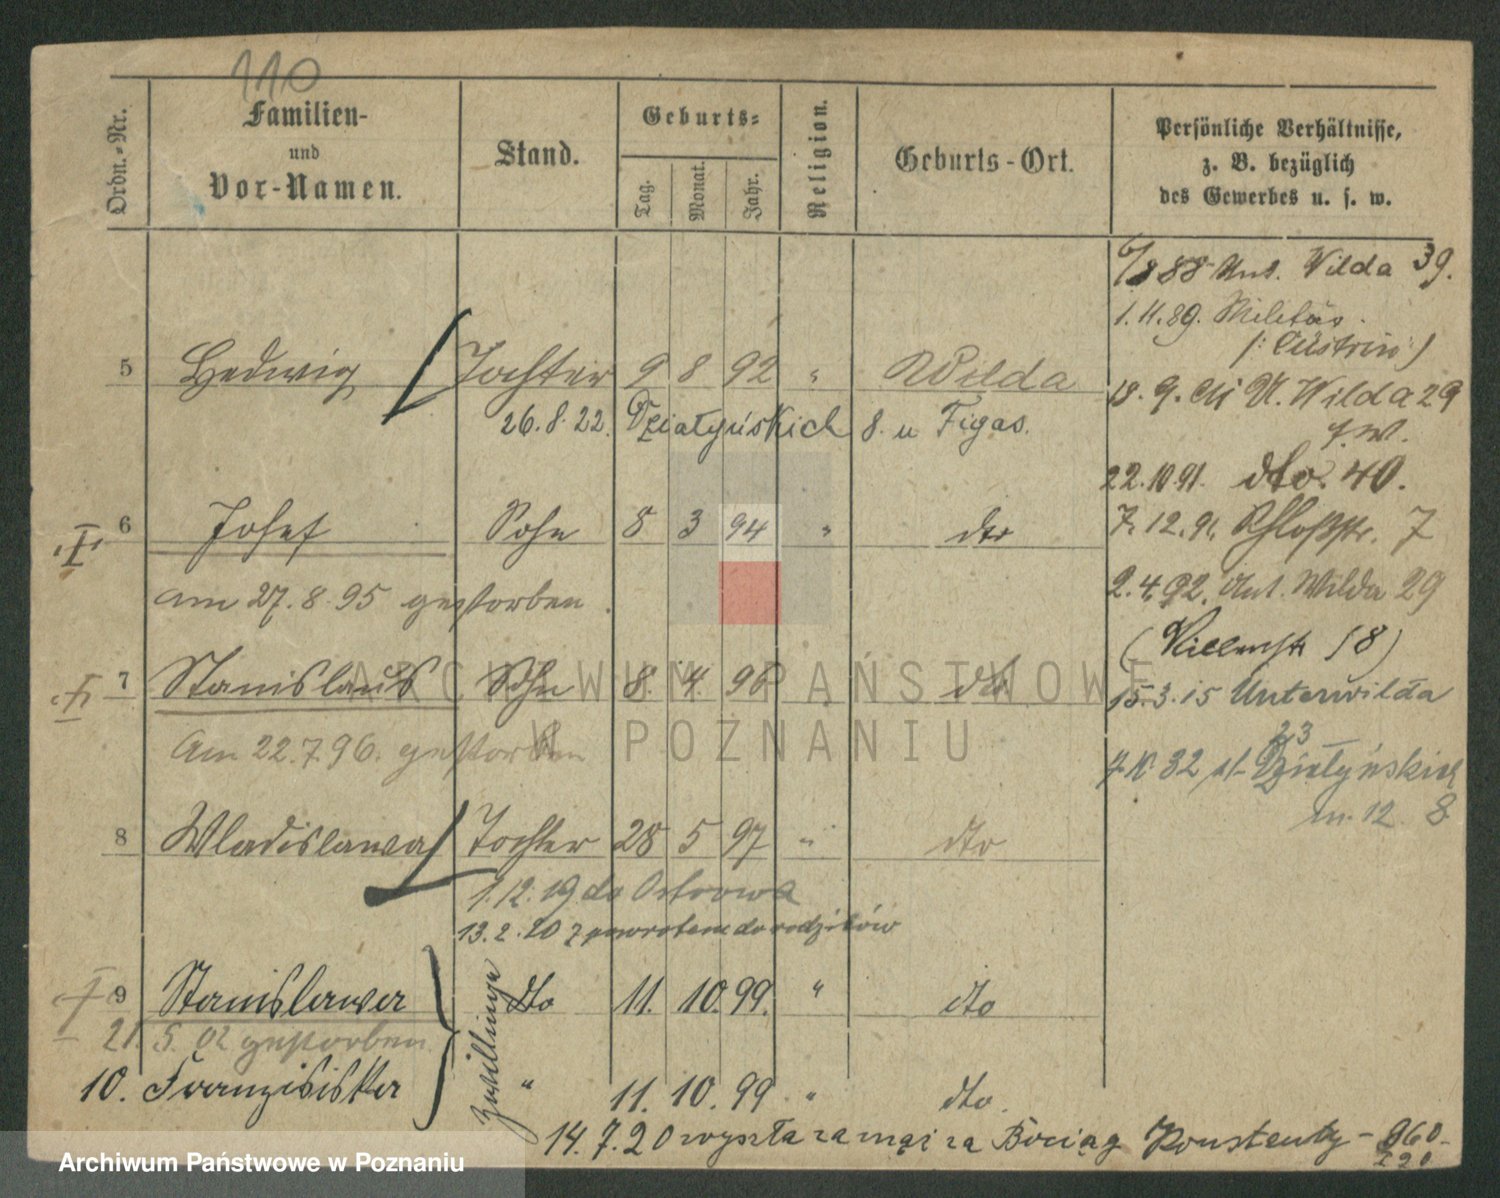 110
Ordn.-Nr.
Familien-
und
Vor-Namen.
Stand.
Geburts-
Tag.
Monat.
Jahr.
Religion.
Geburts-Ort.
Persönliche Verhältnisse,
z. B. bezüglich
des Gewerbes u. s. w.
6/8 88 Unt. Wilda 39.
1.11.89. Militär
(: Cüstrin :)
18. 9. U. Wilda 29
22.10.91. dto. 40.
7. 12. 91. Schloßstr. 7
2. 4. 92. Unt. Wilda 29
15.3.15 Unterwilda
23
32 Działyńskich
m. 12. 8
5 Hedwig Tochter 9 8 92 " Wilda
26.8.22. Działyńskich 8. u Figas.
6 Josef Sohn 8 3 94 " dto
am 27.8.95 gestorben.
7 Stanislaus Sohn 8. 4. 96 dto
Am 22.7.96. gestorben
8 Wladislawa Tochter 28 5 97 " dto
1.12.19 do Ostrowa
13.2.20 z powrotem do rodziców
9 Stanislawa dto 11. 10. 99. " dto
21. 5. 02 gestorben
Zwillinge
10. Franzisiska " 11. 10. 99 " dto.
14.7.20 wyszła za mąż za Bociąg
ARCHIWUM PAŃSTWOWE
W POZNANIU
Archiwum Państwowe w Poznaniu